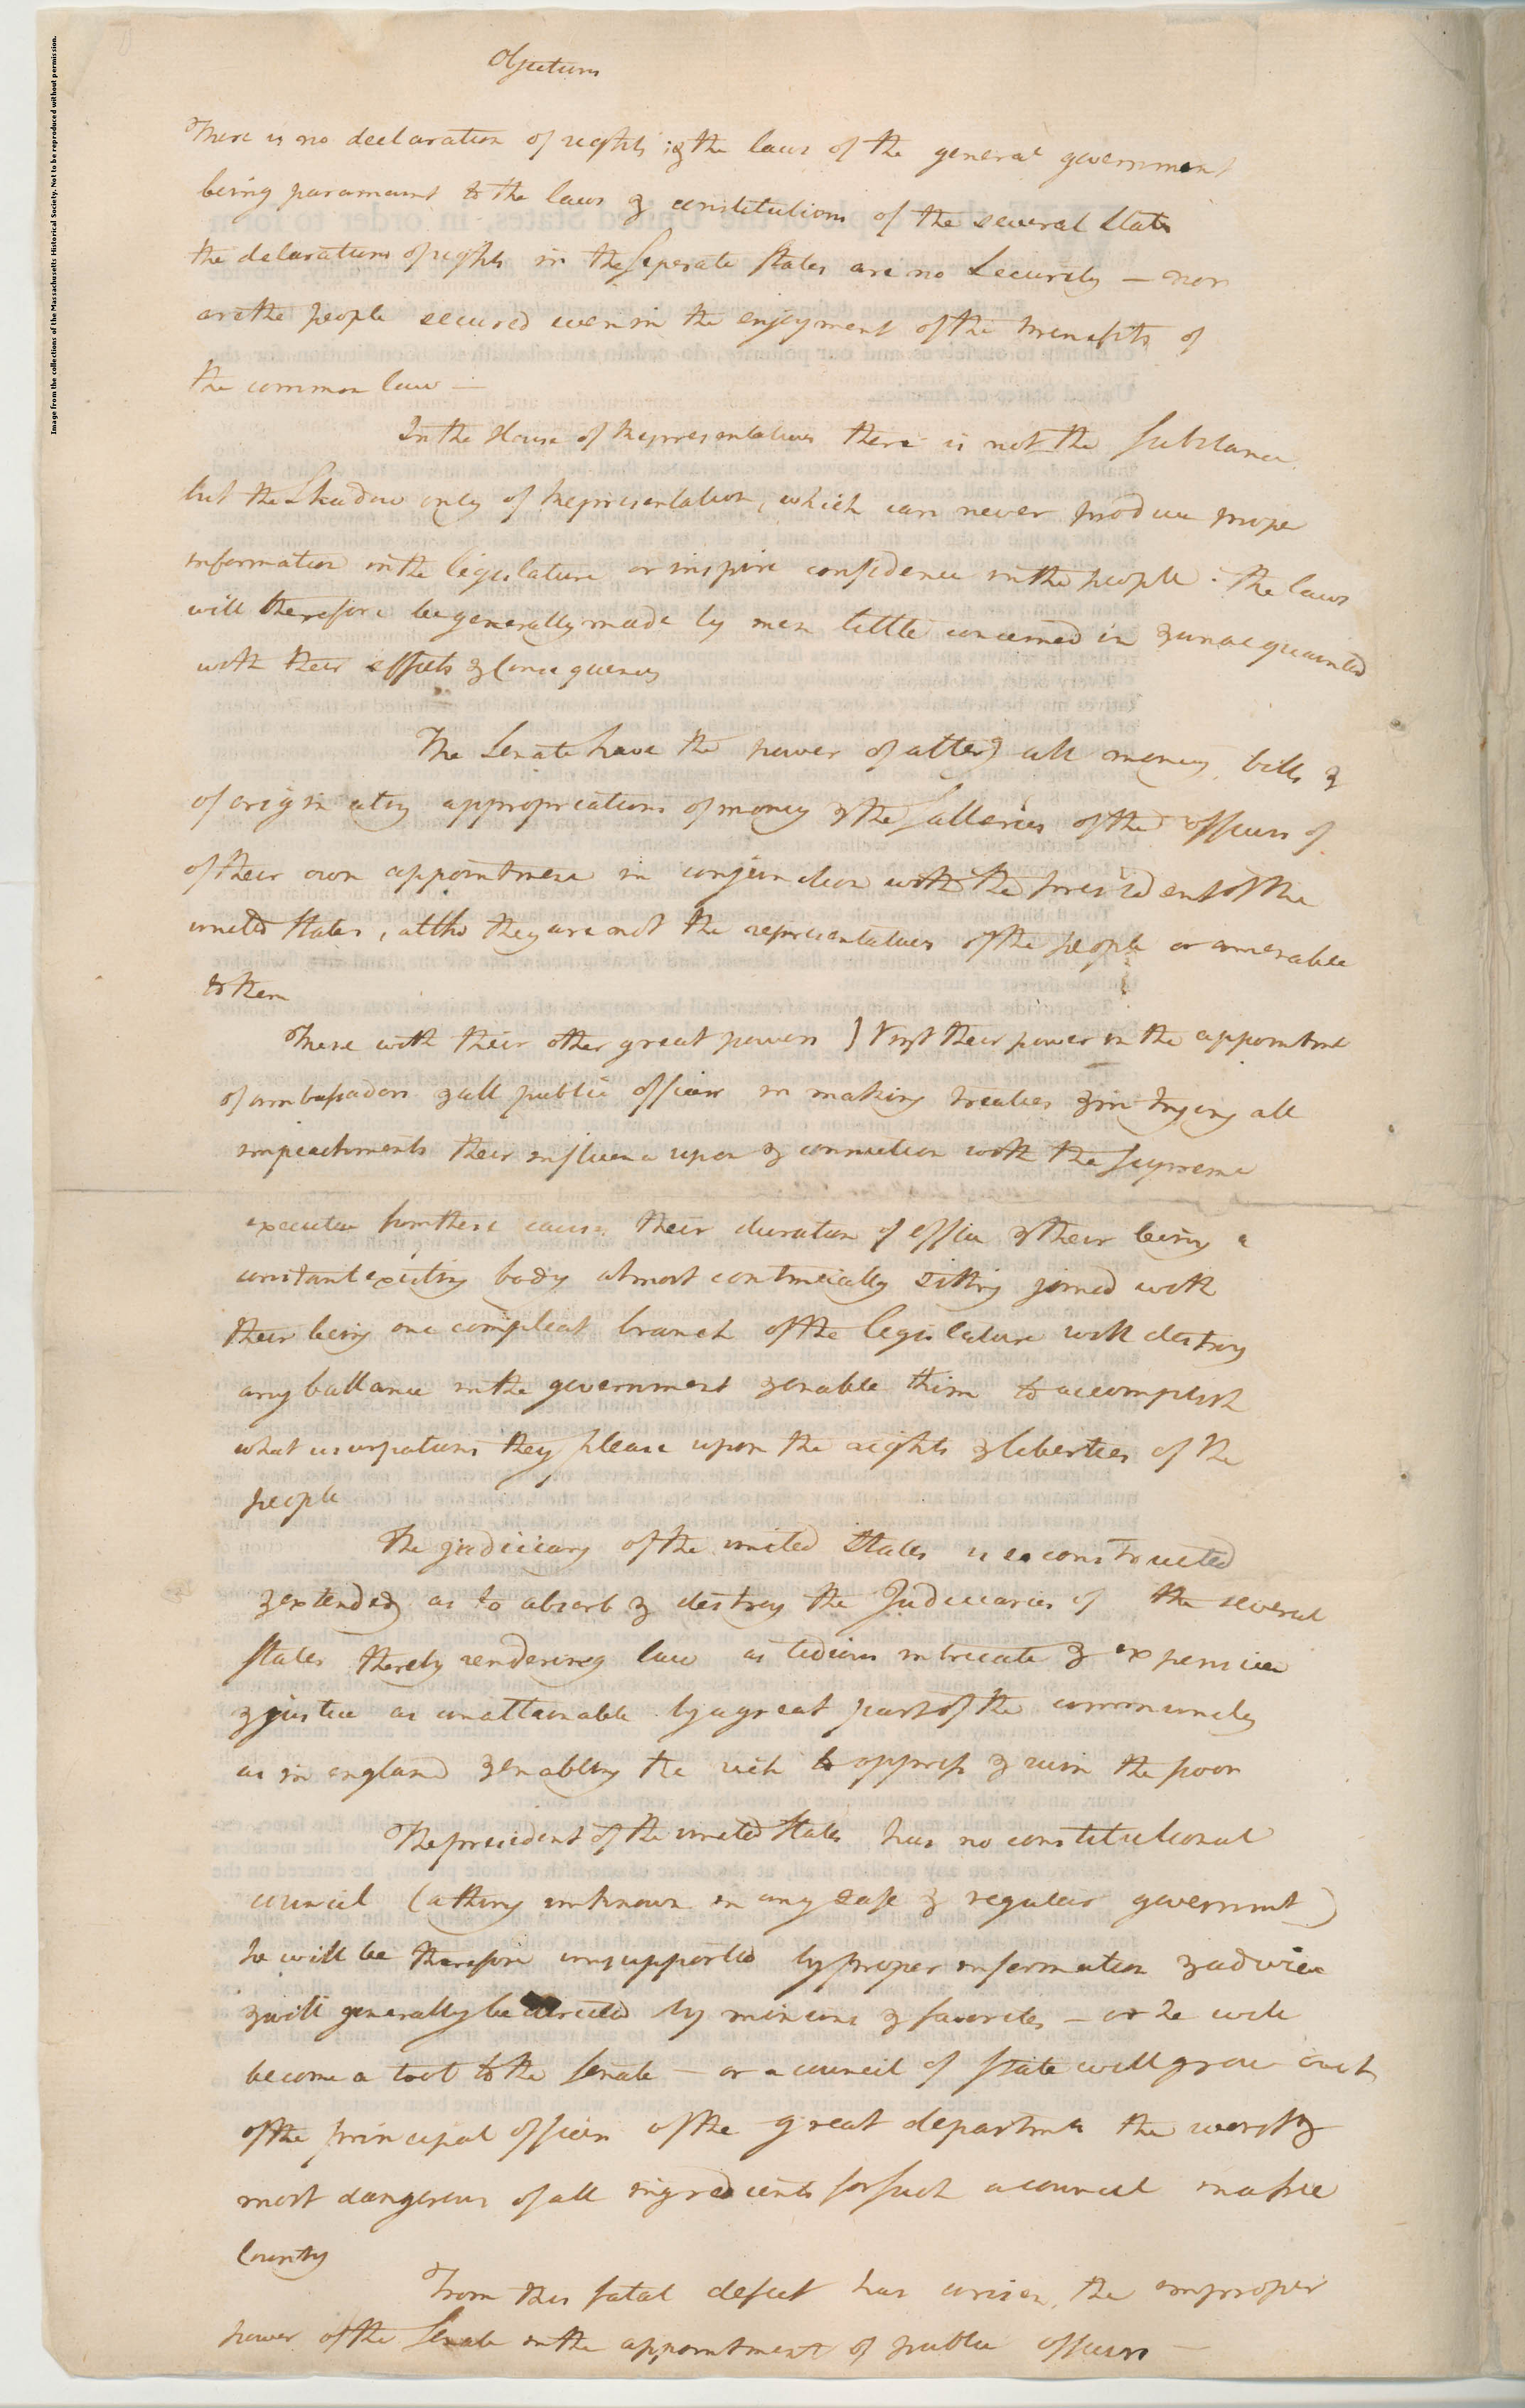 Image from the collections of the Massachusetts Historical Society. Not to be reproduced without permission.
Objections
There is no declaration of rights & the laws of the general government
being paramount to the laws & constitutions of the several States
the declarations of rights in the seperate states are no Security — nor
are the people secured even in the enjoyment of the benefits of
the common law —
In the House of Representatives there is not the Substance
but the Shadow only of Representation, which can never produce proper
information in the legislature or inspire confidence in the people. The laws
will therefore be generally made by men little concerned in & unacquainted
with their effects & Consequences
The Senate have the power of alterg all money bills &
of originating appropriations of money & the Salleries of the officers of
of their own appointment in conjunction with the president of the
united States, altho they are not the representatives of the people or amenable
to them
These with their other great powers ) Vizt their power in the appointmt
of ambassadors & all public officers in making treaties & in trying all
impeachments their influence upon & connection with the supreme
executive from these causes their duration of office & their being a
constant existing body almost continually sitting joined with
their being one compleat branch of the legislature will destroy
any ballance in the government & enable them to accomplish
what usurpations they please upon the rights & liberties of the
people
The judiciary of the united States is so constructed
& extended as to absorb & destroy the Judiciaries of the several
states thereby rendering law as tedious intricate & expensive
& justice as unattainable by a great part of the community
as in england & enabling the rich to oppress & ruin the poor
The president of the united States has no constitutional
council (a thing unknown in any safe & regular governmt)
he will be therefore unsupported by proper information & advice
& will generally be directed by minions & favorites — or he will
become a tool to the senate — or a council of state will grow out
of the principal officers of the great departmts the worst &
most dangerous of all ingredients for such a council in a free
Country
From this fatal defect has arisen the improper
power of the Senate in the appointment of public officers —